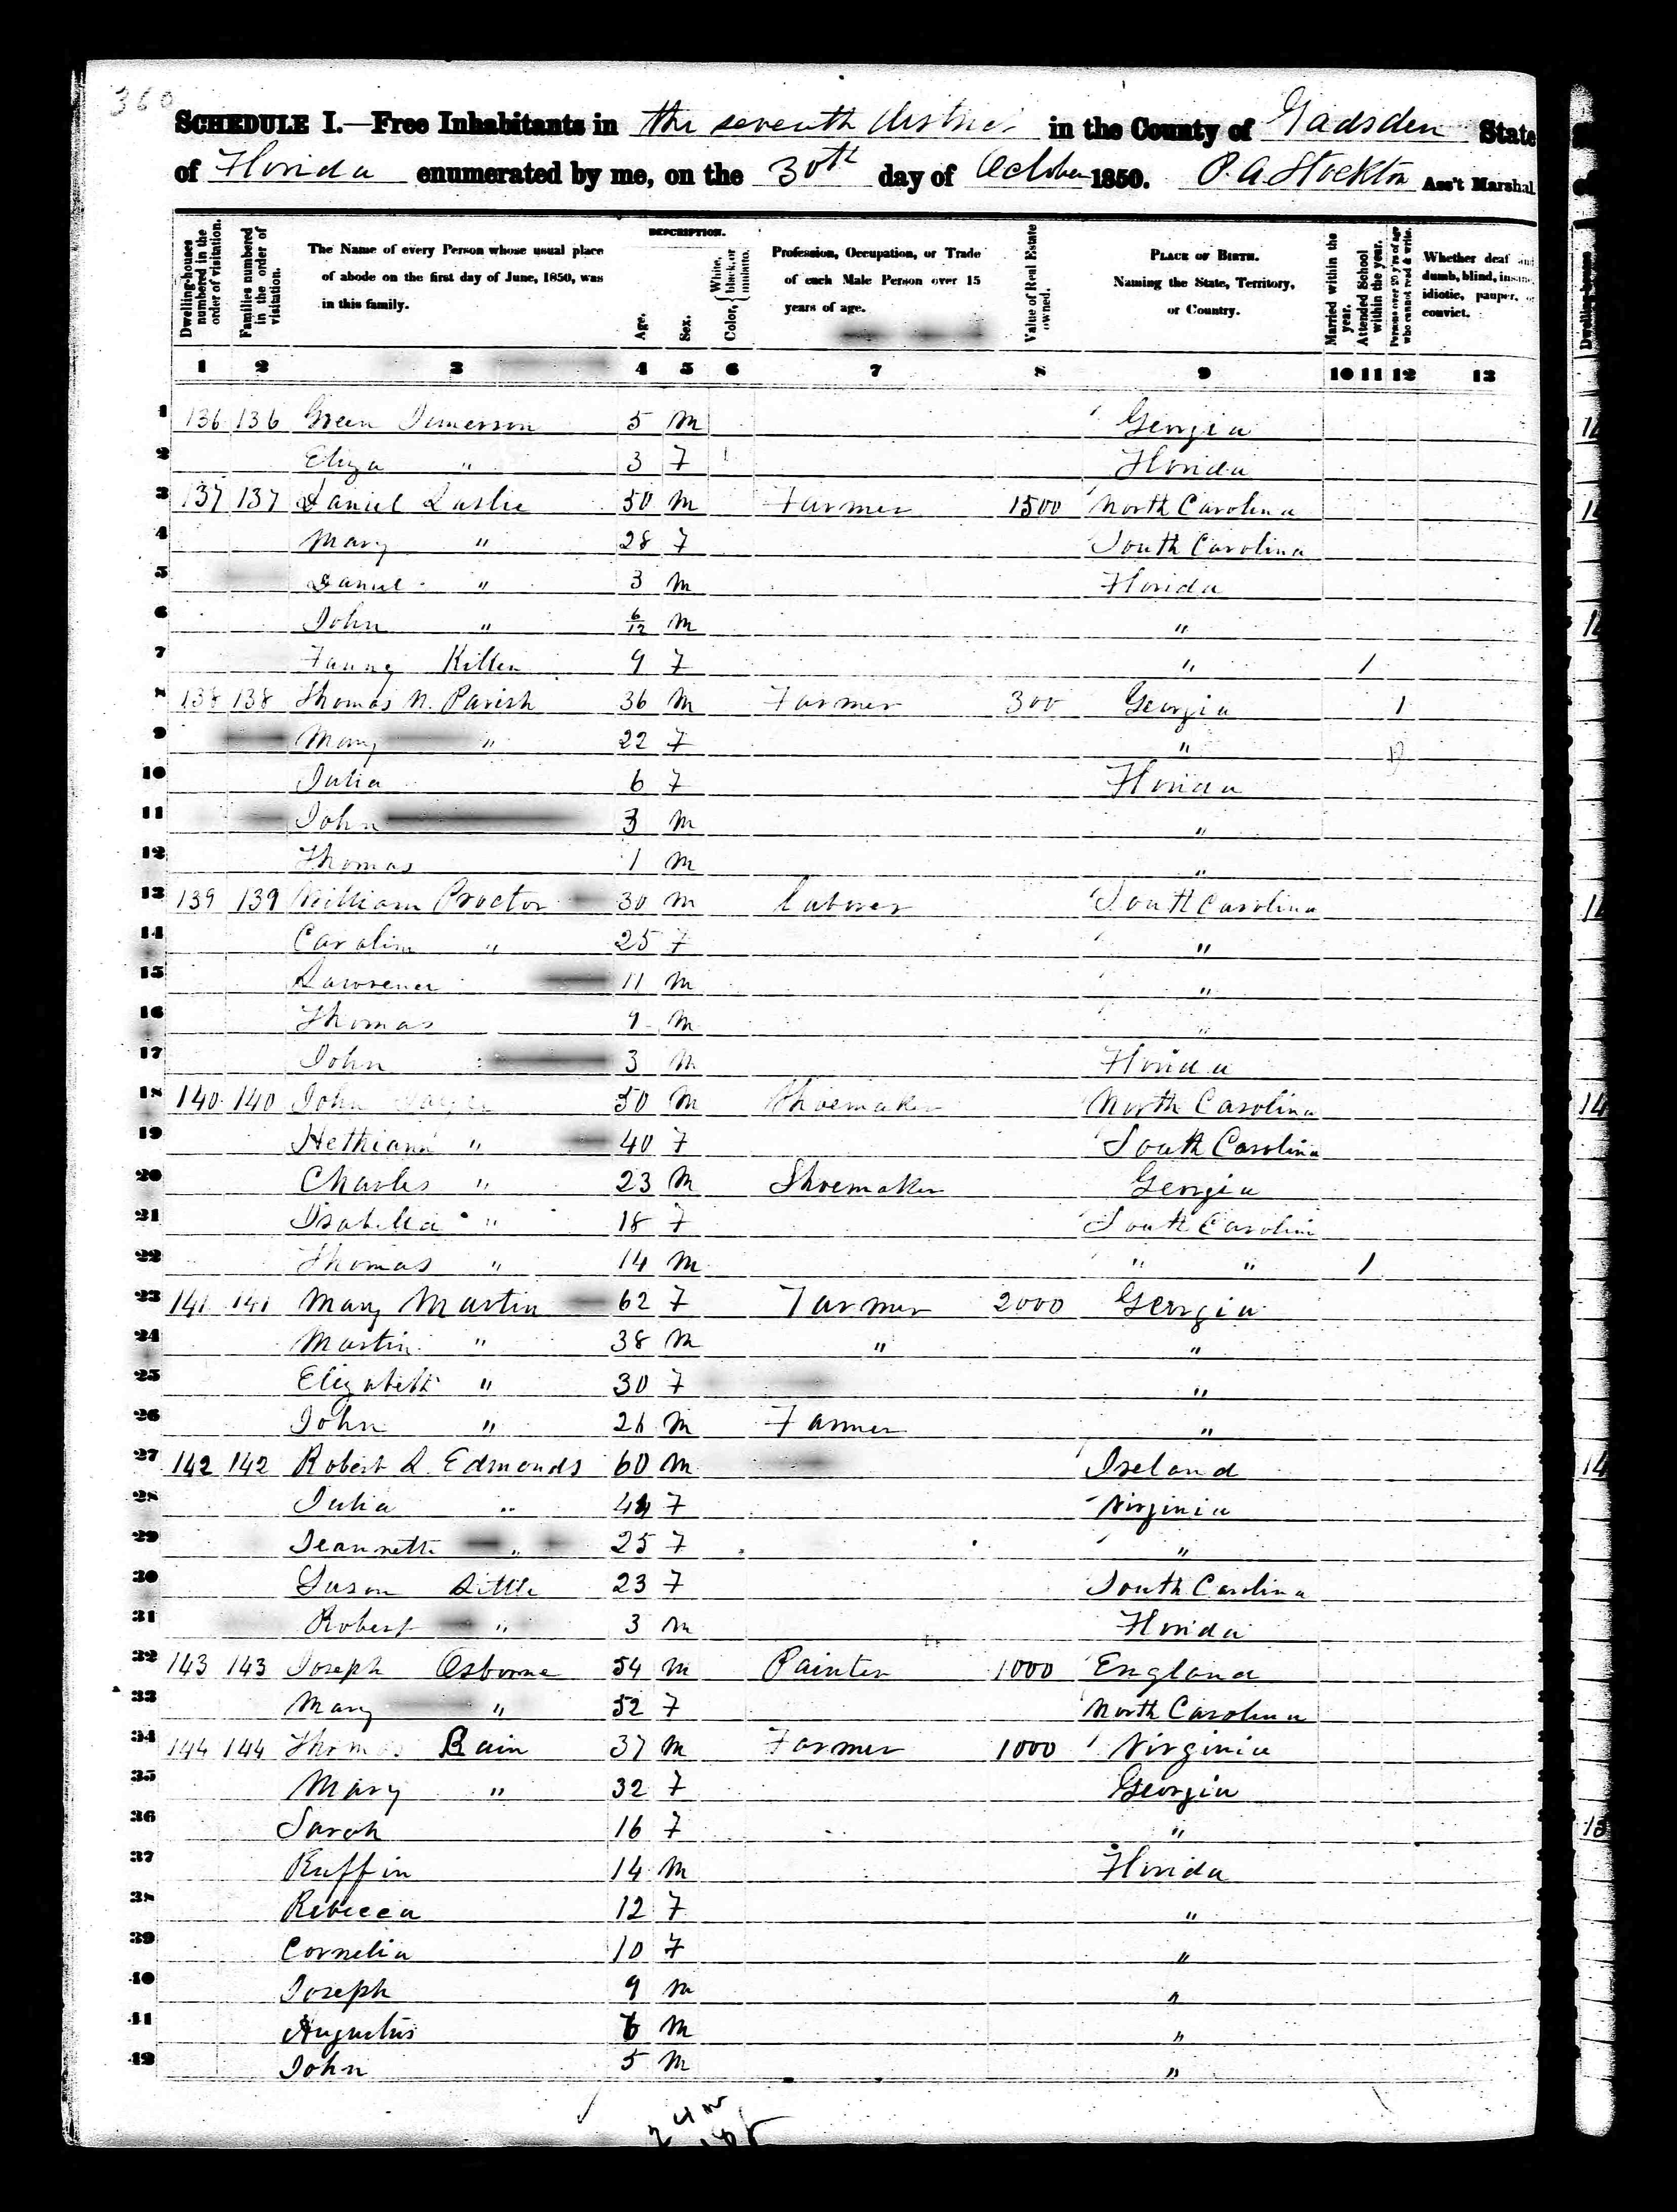 360
SCHEDULE I.—Free Inhabitants in the seventh district in the County of Gadsden State
of Florida enumerated by me, on the 30th day of October 1850. P. A. Stockton Ass't Marshal
Dwelling-houses numbered in the order of visitation.
Families numbered in the order of visitation.
The Name of every Person whose usual place of abode on the first day of June, 1850, was in this family.
DESCRIPTION.
Age.
Sex.
Color, { White, black, or mulatto.
Profession, Occupation, or Trade of each Male Person over 15 years of age.
Value of Real Estate owned.
PLACE OF BIRTH. Naming the State, Territory, or Country.
Married within the year.
Attended School within the year.
Persons over 20 y'rs of age who cannot read & write.
Whether deaf and dumb, blind, insane, idiotic, pauper, or convict.
1 2 3 4 5 6 7 8 9 10 11 12 13
1 136 136 Green 5 m Georgia
2 Eliza " 3 F Florida
3 137 137 Daniel Laslie 50 m Farmer 1500 North Carolina
4 Mary " 28 F South Carolina
5 Daniel " 3 m Florida
6 John " 6/12 m "
7 Fanny 9 F " 1
8 138 138 Thomas N. Parish 36 m Farmer 300 Georgia 1
9 Mary " 22 F "
10 Julia 6 F Florida
11 John 3 m "
12 Thomas 1 m "
13 139 139 William Proctor 30 m laborer South Carolina
14 Carolin " 25 F "
15 11 m "
16 Thomas 9 m "
17 John 3 m Florida
18 140 140 John 50 m Shoemaker North Carolina
19 " 40 F South Carolina
20 Charles " 23 m Shoemaker Georgia
21 Isabella " 18 F South Carolin
22 Thomas " 14 m " " 1
23 141 141 Mary Martin 62 F Farmer 2000 Georgia
24 Martin " 38 m " "
25 Elizabeth " 30 F "
26 John " 26 m Farmer "
27 142 142 Robert L. Edmonds 60 m Ireland
28 Julia " F Virginia
29 Jeannette " 25 F "
30 Susan Little 23 F South Carolina
31 Robert " 3 m Florida
32 143 143 Joseph Osborne 54 m Painter 1000 England
33 Mary " 52 F North Carolina
34 144 144 Thomas Bain 37 m Farmer 1000 Virginia
35 Mary " 32 F Georgia
36 Sarah 16 F "
37 Ruffin 14 m Florida
38 Rebecca 12 F "
39 Cornelia 10 F "
40 Joseph 9 m "
41 Augustus 6 m "
42 John 5 m "